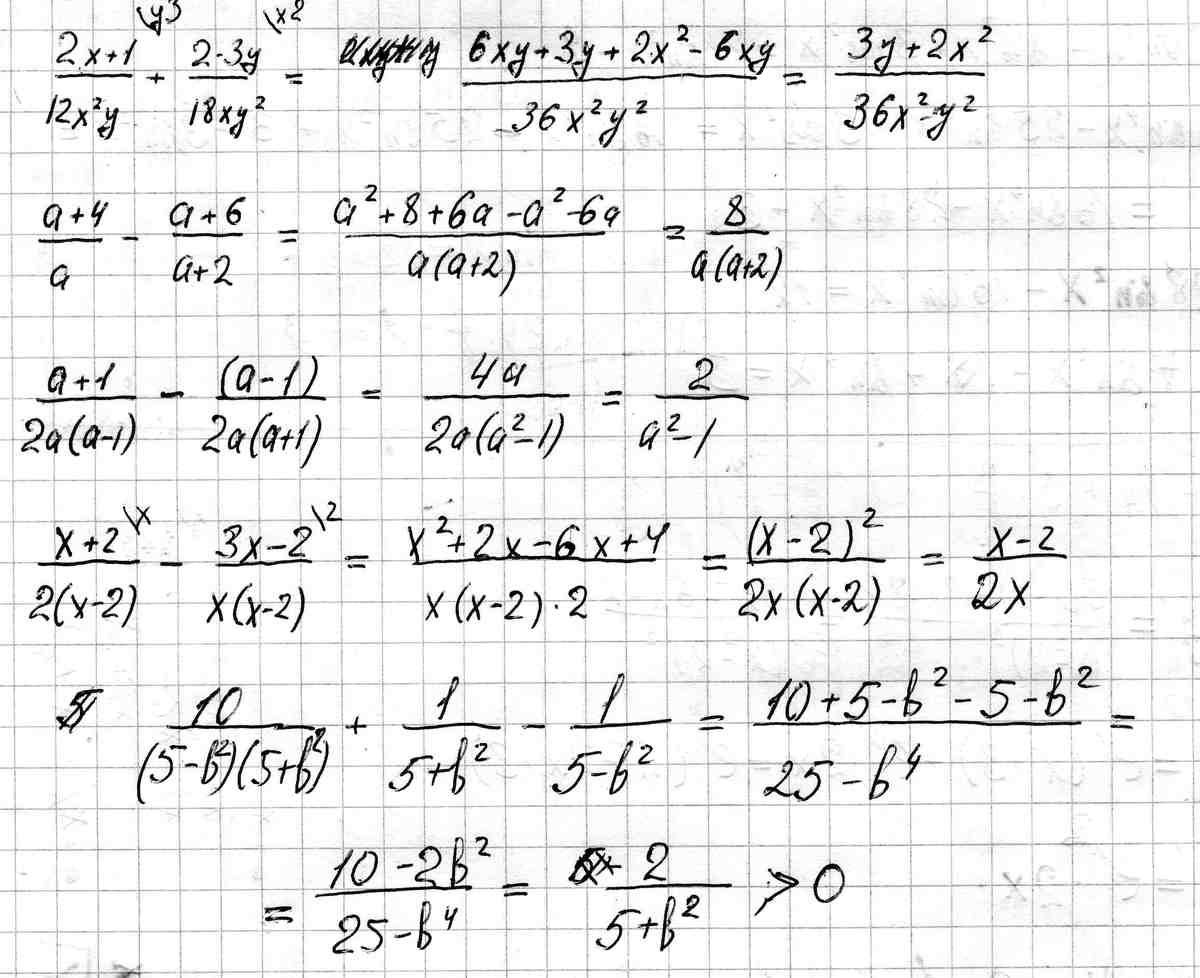 (2x+1)/(12x²y) \y3 + (2-3y)/(18xy²) \x2 = (6xy+3y+2x²-6xy)/(36x²y²) = (3y+2x²)/(36x²y²)
(a+4)/a - (a+6)/(a+2) = (a²+8+6a-a²-6a)/(a(a+2)) = 8/(a(a+2))
(a+1)/(2a(a-1)) - (a-1)/(2a(a+1)) = 4a/(2a(a²-1)) = 2/(a²-1)
(x+2)/(2(x-2)) \x - (3x-2)/(x(x-2)) \2 = (x²+2x-6x+4)/(x(x-2)·2) = (x-2)²/(2x(x-2)) = (x-2)/(2x)
10/((5-b²)(5+b²)) + 1/(5+b²) - 1/(5-b²) = (10+5-b²-5-b²)/(25-b⁴) =
= (10-2b²)/(25-b⁴) = 2/(5+b²) > 0